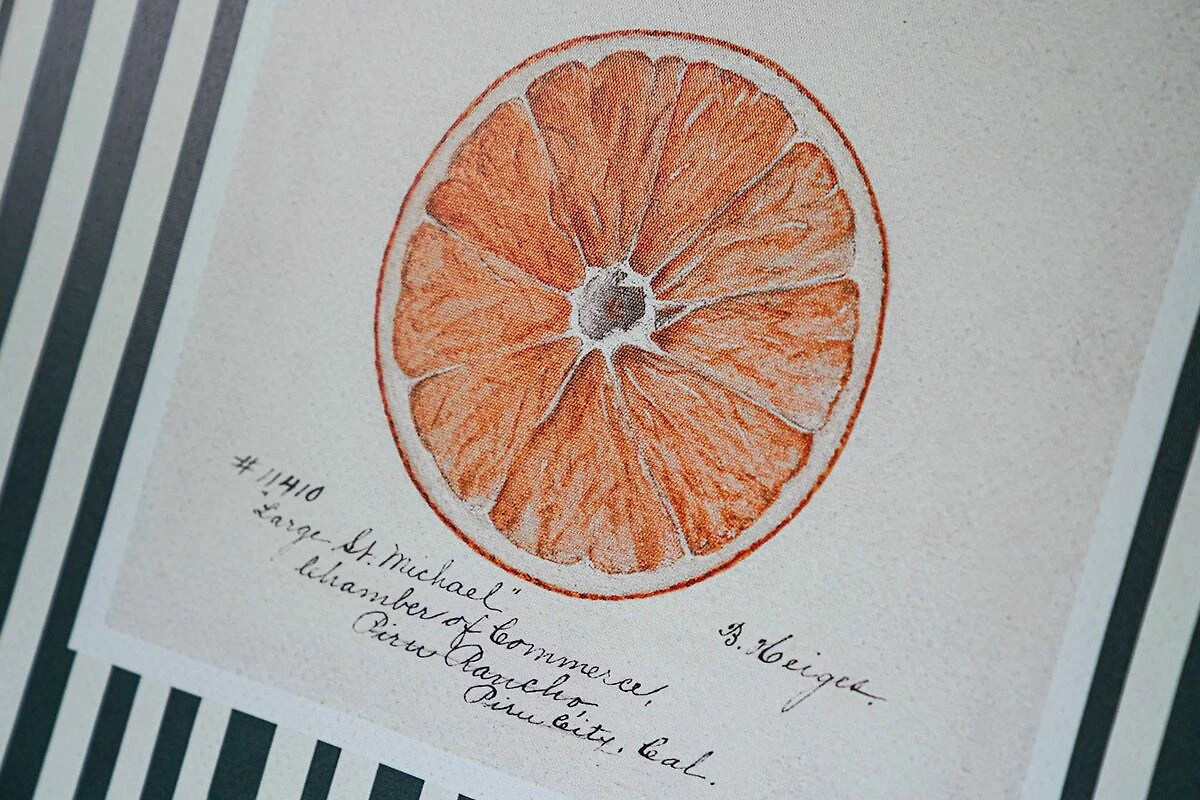 #11410
"Large St. Michael"
Chamber of Commerce,
Piru Rancho,
Piru City, Cal.
B. Heiges.